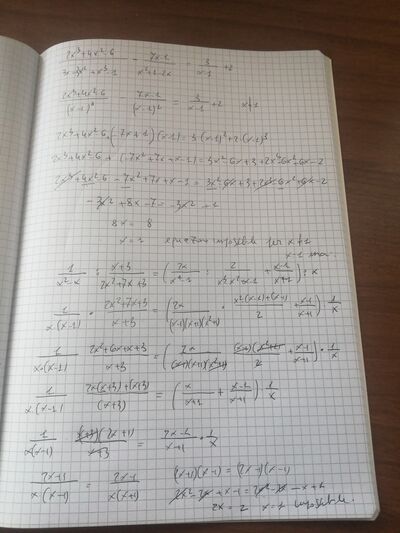 (2x³+4x²-6)/(3x-3x²+x³-1) - (7x-1)/(x²+1-2x) = 3/(x-1) + 2
(2x³+4x²-6)/(x-1)³ - (7x-1)/(x-1)² = 3/(x-1) + 2 x≠1
2x³+4x²-6+(-7x+1)(x-1) = 3(x-1)²+2(x-1)³
2x³+4x²-6+(-7x²+7x+x-1) = 3x²-6x+3+2x³-6x²+6x-2
2x³+4x²-6-7x²+7x+x-1 = 3x²-6x+3+2x³-6x²+6x-2
-3x²+8x-7 = -3x²+1
8x = 8
x=1 equazione impossibile per x≠1
1/(x²-x) : (x+3)/(2x²+7x+3) = (2x/(x⁴-1) : 2/(x³-x²+x-1) + (x-1)/(x+1)) : x
1/(x(x-1)) · (2x²+7x+3)/(x+3) = (2x/((x-1)(x+1)(x²+1)) · (x²(x-1)+(x-1))/2 + (x-1)/(x+1)) · 1/x
1/(x(x-1)) (2x²+6x+x+3)/(x+3) = (2x/((x-1)(x+1)(x²+1)) · (x-1)(x²+1)/2 + (x-1)/(x+1)) · 1/x
1/(x(x-1)) (2x(x+3)+(x+3))/(x+3) = (x/(x+1) + (x-1)/(x+1)) 1/x
1/(x(x-1)) (x+3)(2x+1)/(x+3) = (2x-1)/(x+1) · 1/x
(2x+1)/(x(x-1)) = (2x-1)/(x(x+1)) (2x+1)(x+1) = (2x-1)(x-1)
2x = 2 x=1 impossibile.